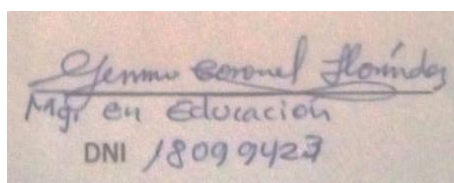 Gemmu Coronel Florindez
Mgr. en Educación
DNI 18099423